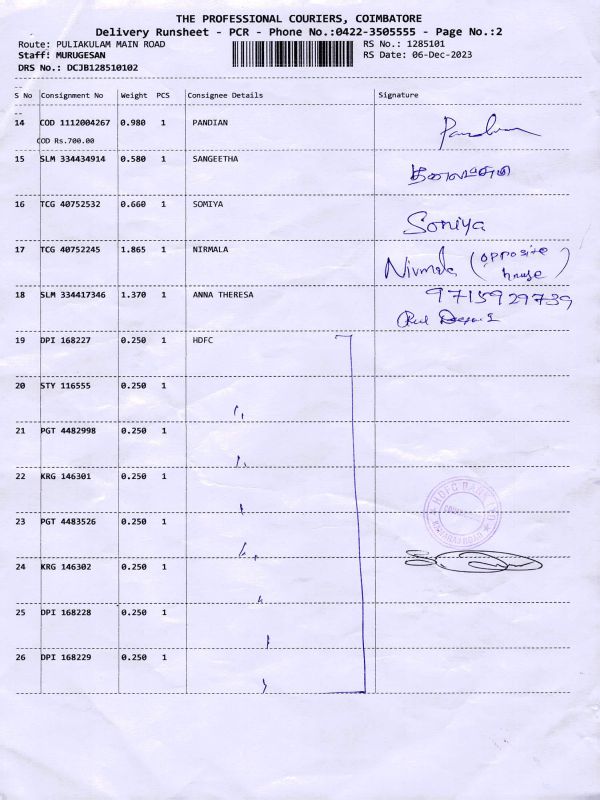 THE PROFESSIONAL COURIERS, COIMBATORE
Delivery Runsheet - PCR - Phone No.:0422-3505555 - Page No.:2
Route: PULIAKULAM MAIN ROAD RS No.: 1285101
Staff: MURUGESAN RS Date: 06-Dec-2023
DRS No.: DCJB128510102
S No Consignment No Weight PCS Consignee Details Signature
14 COD 1112004267 0.980 1 PANDIAN
COD Rs.700.00
15 SLM 334434914 0.580 1 SANGEETHA
16 TCG 40752532 0.660 1 SOMIYA Somiya
17 TCG 40752245 1.865 1 NIRMALA Nirmala (opposite
house)
18 SLM 334417346 1.370 1 ANNA THERESA 9715929739
19 DPI 168227 0.250 1 HDFC
20 STY 116555 0.250 1
21 PGT 4482998 0.250 1
22 KRG 146301 0.250 1
HDFC BANK LTD
23 PGT 4483526 0.250 1
24 KRG 146302 0.250 1
25 DPI 168228 0.250 1
26 DPI 168229 0.250 1